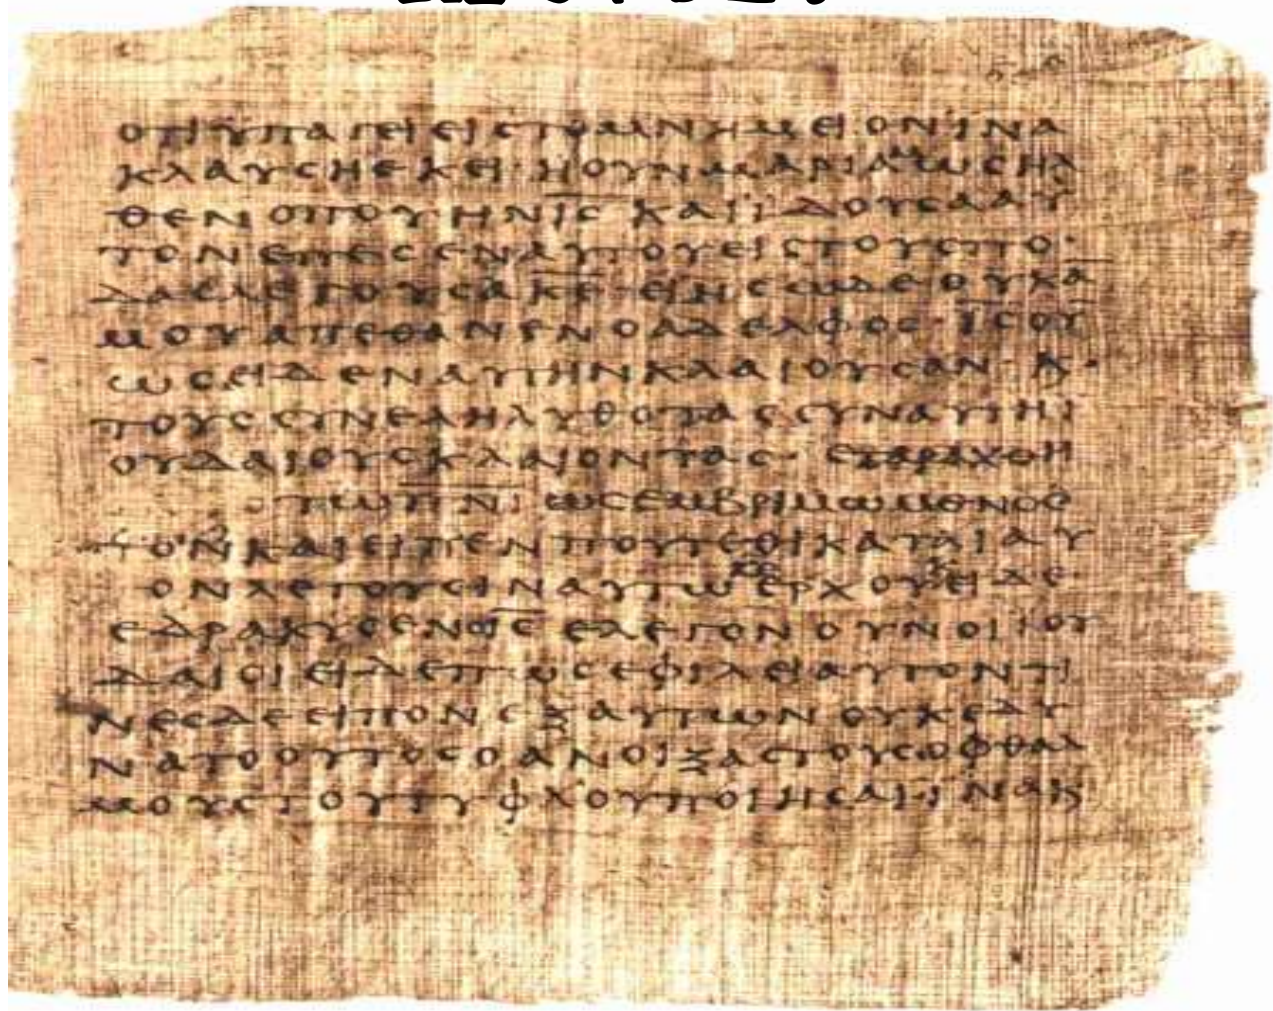 ΟΤΙ ΫΠΑΓΕΙ ΕΙΣ ΤΟ ΜΝΗΜΕΙΟΝ ΪΝΑ
ΚΛΑΥΣΗ ΕΚΕΙ· Η ΟΥΝ ΜΑΡΙΑΜ ΩΣ ΗΛ
ΘΕΝ ΟΠΟΥ ΗΝ ΙΣ ΚΑΙ ΪΔΟΥΣΑ ΑΥ
ΤΟΝ ΕΠΕΣΕΝ ΑΥΤΟΥ ΕΙΣ ΤΟΥΣ ΠΟ
ΔΑΣ ΛΕΓΟΥΣΑ ΚΕ ΕΙ ΗΣ ΩΔΕ ΟΥΚ Α
ΜΟΥ ΑΠΕΘΑΝΕΝ Ο ΑΔΕΛΦΟΣ· ΙΣ ΟΥ
ΩΣ ΕΙΔΕΝ ΑΥΤΗΝ ΚΛΑΙΟΥΣΑΝ· Κ
ΤΟΥΣ ΣΥΝΕΛΗΛΥΘΟΤΑΣ ΣΥΝ ΑΥΤΗ Ι
ΟΥΔΑΙΟΥΣ ΚΛΑΙΟΝΤΑΣ· ΕΤΑΡΑΧΘΗ
ΤΩ ΠΝΙ ΩΣ ΕΜΒΡΙΜΩΜΕΝΟΣ
ΚΑΙ ΕΙΠΕΝ ΠΟΥ ΤΕΘΙΚΑΤΑΙ ΑΥ
ΟΝ ΛΕΓΟΥΣΙΝ ΑΥΤΩ ΚΕ ΕΡΧΟΥ Κ ΕΙΔΕ
ΕΔΑΚΡΥΣΕΝ Ο ΙΣ ΕΛΕΓΟΝ ΟΥΝ ΟΙ ΙΟΥ
ΔΑΙΟΙ ΕΙΔΕ ΠΩΣ ΕΦΙΛΕΙ ΑΥΤΟΝ ΤΙ
ΝΕΣ ΔΕ ΕΙΠΟΝ ΕΞ ΑΥΤΩΝ ΟΥΚ ΕΔΥ
ΝΑΤΟ ΟΥΤΟΣ Ο ΑΝΟΙΞΑΣ ΤΟΥΣ ΟΦΘΑΛ
ΜΟΥΣ ΤΟΥ ΤΥΦΛΟΥ ΠΟΙΗΣΑΙ ΪΝΑ Κ